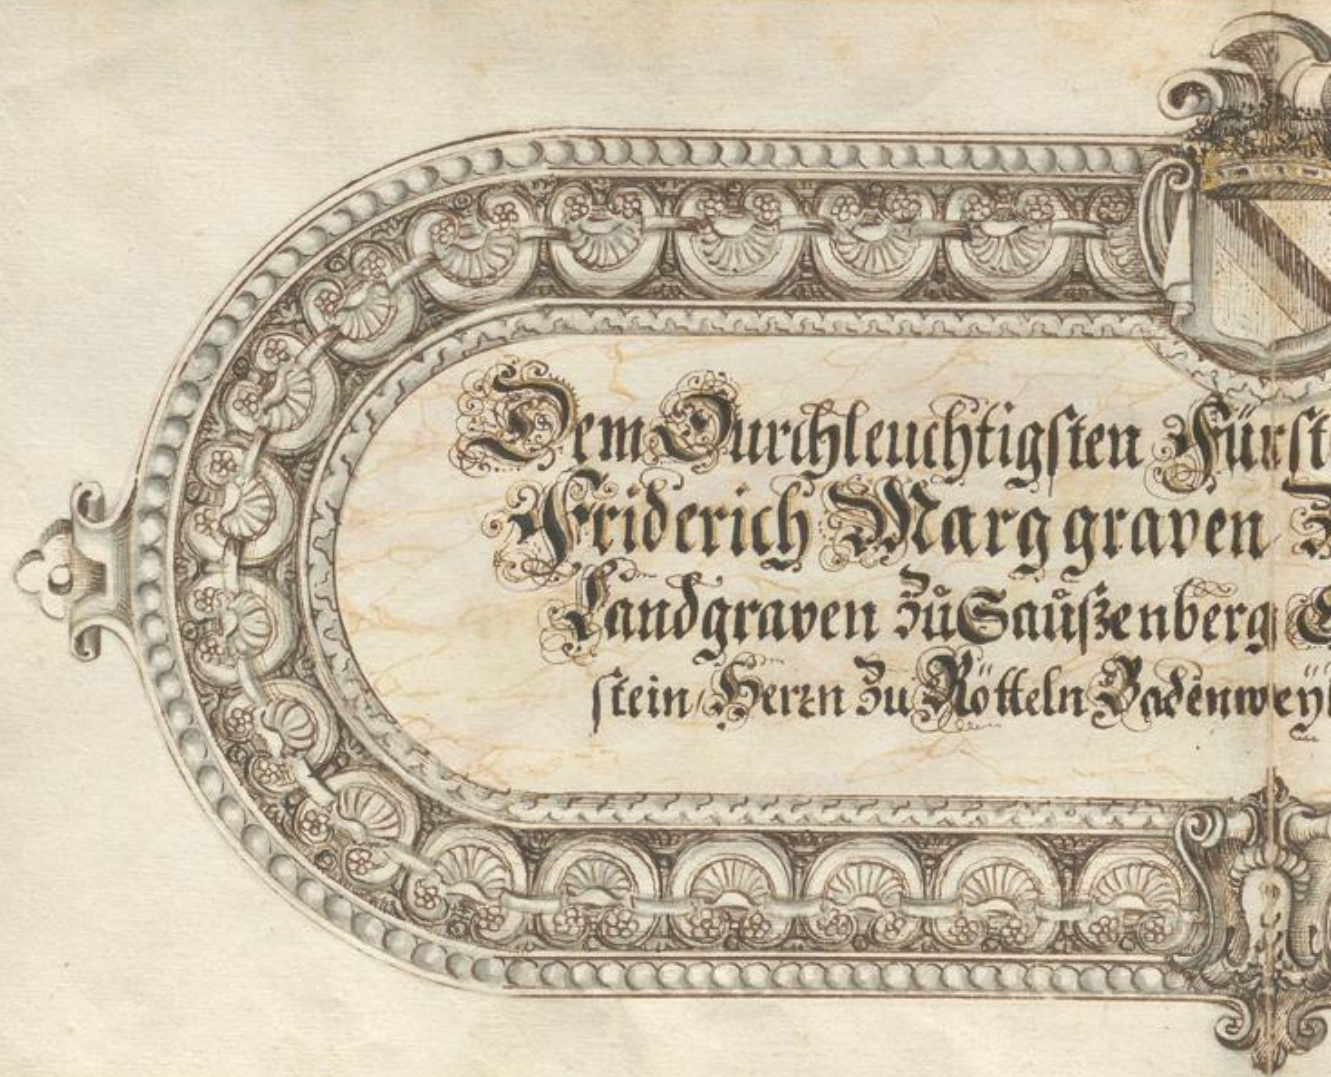 Dem Durchleuchtigſten Fürſt
Friderich Marggraven
Landgraven zů Saůſzenberg
ſtein, Herrn zu Rötteln Badenweÿl